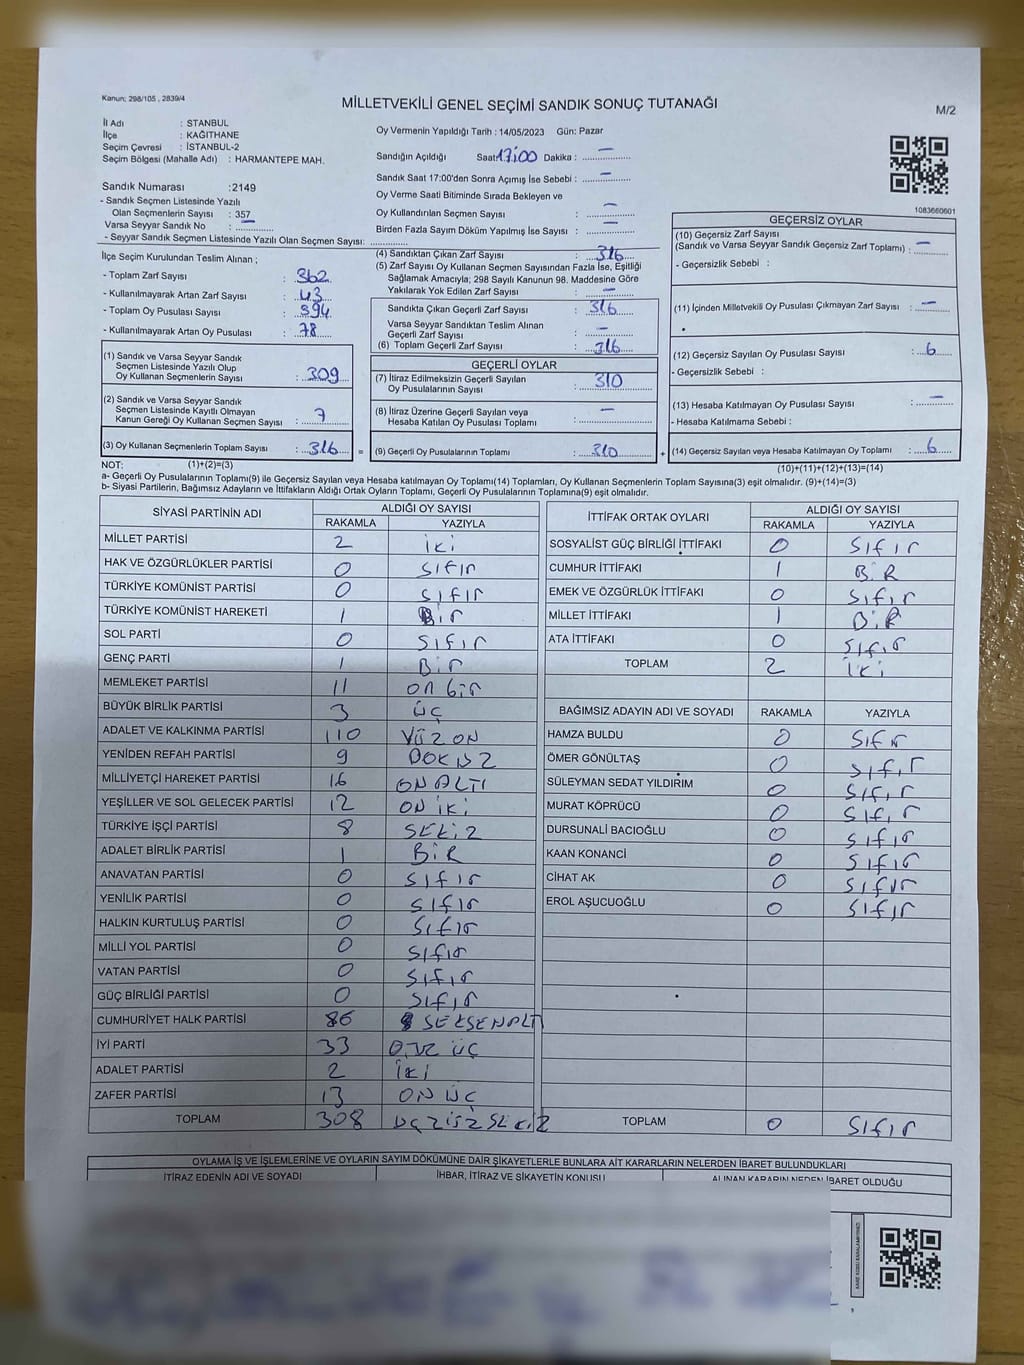 Kanun: 298/105 , 2839/4
MİLLETVEKİLİ GENEL SEÇİMİ SANDIK SONUÇ TUTANAĞI
M/2
İl Adı : STANBUL
İlçe : KAĞITHANE
Seçim Çevresi : İSTANBUL-2
Seçim Bölgesi (Mahalle Adı) : HARMANTEPE MAH.
Sandık Numarası :2149
- Sandık Seçmen Listesinde Yazılı
Olan Seçmenlerin Sayısı : 357
Varsa Seyyar Sandık No : —
- Seyyar Sandık Seçmen Listesinde Yazılı Olan Seçmen Sayısı: ............
Oy Vermenin Yapıldığı Tarih : 14/05/2023 Gün: Pazar
Sandığın Açıldığı Saat: 17:00 Dakika : —
Sandık Saat 17:00'den Sonra Açımış İse Sebebi : —
Oy Verme Saati Bitiminde Sırada Bekleyen ve
Oy Kullandırılan Seçmen Sayısı : —
Birden Fazla Sayım Döküm Yapılmış İse Sayısı : —
1083660601
İlçe Seçim Kurulundan Teslim Alınan ;
- Toplam Zarf Sayısı : 362
- Kullanılmayarak Artan Zarf Sayısı : 43
- Toplam Oy Pusulası Sayısı : 394
- Kullanılmayarak Artan Oy Pusulası : 78
(1) Sandık ve Varsa Seyyar Sandık
Seçmen Listesinde Yazılı Olup
Oy Kullanan Seçmenlerin Sayısı : 309
(2) Sandık ve Varsa Seyyar Sandık
Seçmen Listesinde Kayıtlı Olmayan
Kanun Gereği Oy Kullanan Seçmen Sayısı : 7
(3) Oy Kullanan Seçmenlerin Toplam Sayısı : 316 =
(4) Sandıktan Çıkan Zarf Sayısı : 316
(5) Zarf Sayısı Oy Kullanan Seçmen Sayısından Fazla İse, Eşitliği
Sağlamak Amacıyla; 298 Sayılı Kanunun 98. Maddesine Göre
Yakılarak Yok Edilen Zarf Sayısı : —
Sandıkta Çıkan Geçerli Zarf Sayısı : 316
Varsa Seyyar Sandıktan Teslim Alınan
Geçerli Zarf Sayısı : —
(6) Toplam Geçerli Zarf Sayısı : 316
GEÇERLİ OYLAR
(7) İtiraz Edilmeksizin Geçerli Sayılan
Oy Pusulalarının Sayısı : 310
(8) İtiraz Üzerine Geçerli Sayılan veya
Hesaba Katılan Oy Pusulası Toplamı : —
(9) Geçerli Oy Pusulalarının Toplamı : 310 +
GEÇERSİZ OYLAR
(10) Geçersiz Zarf Sayısı
(Sandık ve Varsa Seyyar Sandık Geçersiz Zarf Toplamı) : —
- Geçersizlik Sebebi :
(11) İçinden Milletvekili Oy Pusulası Çıkmayan Zarf Sayısı : —
(12) Geçersiz Sayılan Oy Pusulası Sayısı : 6
- Geçersizlik Sebebi :
(13) Hesaba Katılmayan Oy Pusulası Sayısı : —
- Hesaba Katılmama Sebebi :
(14) Geçersiz Sayılan veya Hesaba Katılmayan Oy Toplamı : 6
NOT: (1)+(2)=(3)
(10)+(11)+(12)+(13)=(14)
a- Geçerli Oy Pusulalarının Toplamı(9) ile Geçersiz Sayılan veya Hesaba katılmayan Oy Toplamı(14) Toplamları, Oy Kullanan Seçmenlerin Toplam Sayısına(3) eşit olmalıdır. (9)+(14)=(3)
b- Siyasi Partilerin, Bağımsız Adayların ve İttifakların Aldığı Ortak Oyların Toplamı, Geçerli Oy Pusulalarının Toplamına(9) eşit olmalıdır.
SİYASİ PARTİNİN ADI ALDIĞI OY SAYISI
RAKAMLA YAZIYLA
MİLLET PARTİSİ 2 iki
HAK VE ÖZGÜRLÜKLER PARTİSİ 0 sıfır
TÜRKİYE KOMÜNİST PARTİSİ 0 sıfır
TÜRKİYE KOMÜNİST HAREKETİ 1 Bir
SOL PARTİ 0 sıfır
GENÇ PARTİ 1 Bir
MEMLEKET PARTİSİ 11 on bir
BÜYÜK BİRLİK PARTİSİ 3 üç
ADALET VE KALKINMA PARTİSİ 110 YÜZ ON
YENİDEN REFAH PARTİSİ 9 DOKUZ
MİLLİYETÇİ HAREKET PARTİSİ 16 ON ALTI
YEŞİLLER VE SOL GELECEK PARTİSİ 12 ON iKi
TÜRKİYE İŞÇİ PARTİSİ 8 SEKiZ
ADALET BİRLİK PARTİSİ 1 BiR
ANAVATAN PARTİSİ 0 sıfır
YENİLİK PARTİSİ 0 sıfır
HALKIN KURTULUŞ PARTİSİ 0 sıfır
MİLLİ YOL PARTİSİ 0 sıfır
VATAN PARTİSİ 0 sıfır
GÜÇ BİRLİĞİ PARTİSİ 0 sıfır
CUMHURİYET HALK PARTİSİ 86 SEKSENALTI
İYİ PARTİ 33 OTUZ ÜÇ
ADALET PARTİSİ 2 iki
ZAFER PARTİSİ 13 ON ÜÇ
TOPLAM 308 ÜÇ YÜZ SEKiZ
İTTİFAK ORTAK OYLARI ALDIĞI OY SAYISI
RAKAMLA YAZIYLA
SOSYALİST GÜÇ BİRLİĞİ İTTİFAKI 0 sıfır
CUMHUR İTTİFAKI 1 BiR
EMEK VE ÖZGÜRLÜK İTTİFAKI 0 sıfır
MİLLET İTTİFAKI 1 BiR
ATA İTTİFAKI 0 sıfır
TOPLAM 2 iki
BAĞIMSIZ ADAYIN ADI VE SOYADI RAKAMLA YAZIYLA
HAMZA BULDU 0 sıfır
ÖMER GÖNÜLTAŞ 0 sıfır
SÜLEYMAN SEDAT YILDIRIM 0 sıfır
MURAT KÖPRÜCÜ 0 sıfır
DURSUNALİ BACIOĞLU 0 sıfır
KAAN KONANCİ 0 sıfır
CİHAT AK 0 sıfır
EROL AŞUCUOĞLU 0 sıfır
TOPLAM 0 sıfır
OYLAMA İŞ VE İŞLEMLERİNE VE OYLARIN SAYIM DÖKÜMÜNE DAİR ŞİKAYETLERLE BUNLARA AİT KARARLARIN NELERDEN İBARET BULUNDUKLARI
İTİRAZ EDENİN ADI VE SOYADI İHBAR, İTİRAZ VE ŞİKAYETİN KONUSU ALINAN KARARIN NEDEN İBARET OLDUĞU